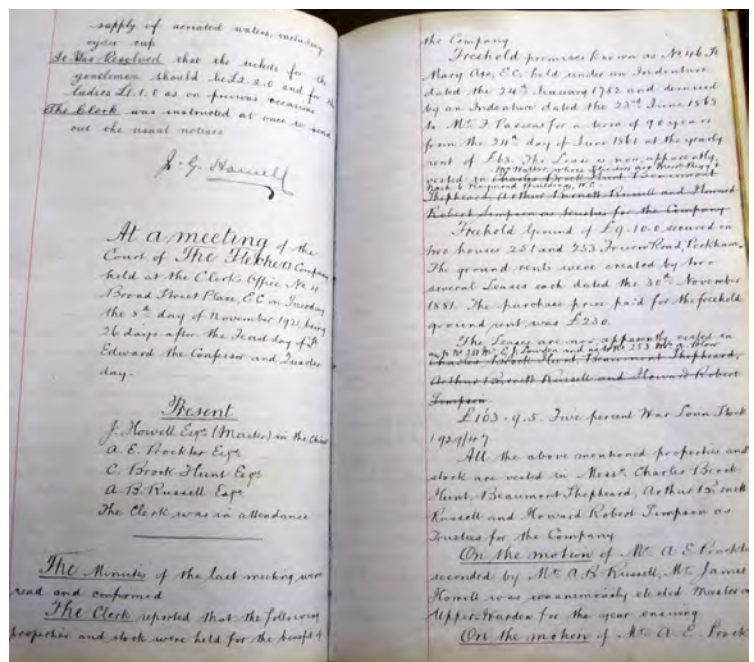 supply of aerated waters, including
cyder cup
It Was Resolved that the tickets for the
gentlemen should be £2.2.0 and for the
ladies £1.1.0 as on previous occasions
The Clerk was instructed at once to send
out the usual notices
J. G. Howell
At a meeting of the
Court of The Fletchers Company
held at the Clerk's Office No 4
Broad Street Place, E.C on Tuesday
the 8th day of November 1921, being
26 days after the Feast day of St
Edward the Confessor and Quarter
day.
Present
J. Howell Esqre (Master) in the Chair
A. E. Prockter Esqre
C. Brock Hunt Esqre
A. B. Russell Esqre
The Clerk was in attendance
The Minutes of the last meeting were
read and confirmed
The Clerk reported that the following
properties and stock were held for the benefit of
the Company
Freehold premises known as No 46 St
Mary Axe, E.C. held under an Indenture
dated the 24th January 1782 and demised
by an Indenture dated the 23rd June 1865
to Mr. F Parsons for a term of 90 years
from the 24th day of June 1861 at the yearly
rent of £63. The Lease is now, apparently,
Mr Walter, whose
vested in Charles Brock Hunt Beaumont
Raymond Buildings, W.C.
Shepheard, Arthur Burnett Russell and Howard
Robert Simpson as trustees for the Company
Freehold Ground of £9.10.0 secured on
two houses 251 and 253 Road, Peckham.
The ground rents were created by two
several Leases each dated the 30th November
1881. The purchase price paid for the freehold
ground rent was £230.
The Leases are now, apparently, vested in
as to No 251 Mr E. J. and as to No 253 Mr A.
Charles Brock Hunt, Beaumont Shepheard,
Arthur Burnett Russell and Howard Robert
Simpson
£103-9.5. Five percent War Loan Stock
1929/47
All the above mentioned properties and
stock are vested in Messrs. Charles Brock
Hunt, Beaumont Shepheard, Arthur Burnett
Russell and Howard Robert Simpson as
Trustees for the Company
On the motion of Mr. A E. Prockter
seconded by Mr. A.B. Russell, Mr. James
Howell was unanimously elected Master and
Upper Warden for the year ensuing
On the motion of Mr. A. E. Prock